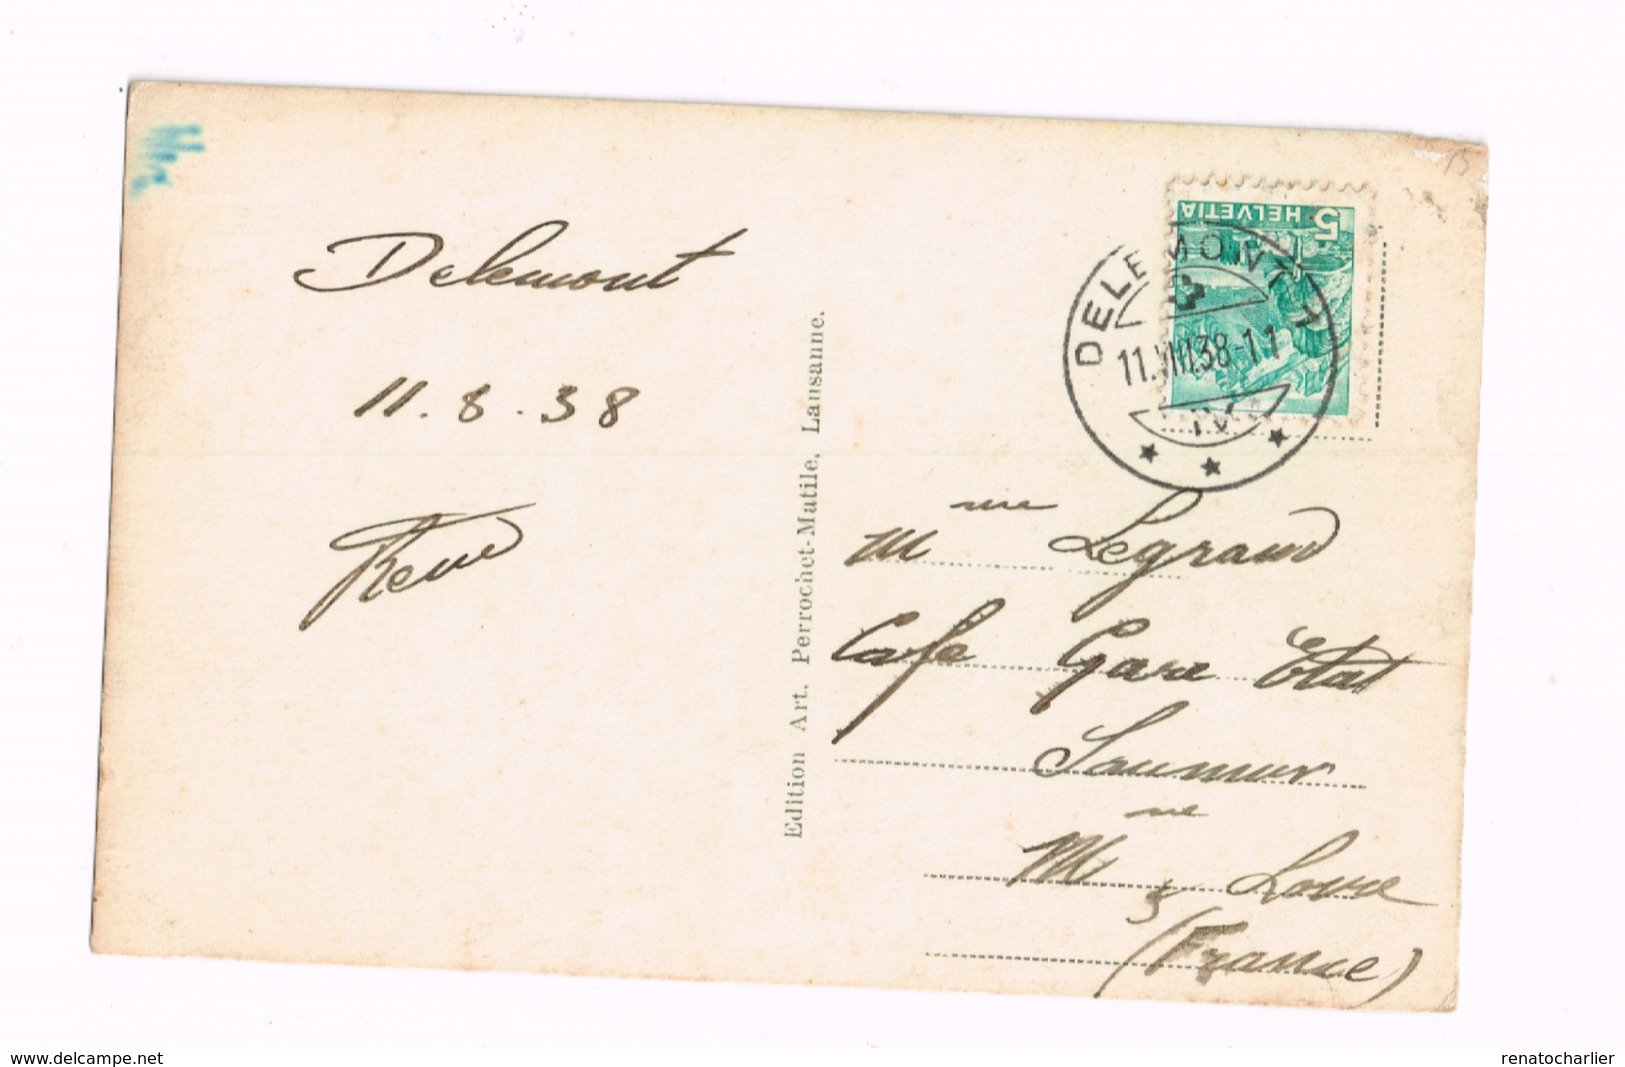 Delemont
11.8.38
René
Edition Art. Perrochet-Matile, Lausanne.
HELVETIA 5
DELEMONT 1
11.VIII.38-11
Mme Legrand
Café Gare Etat
Saumur
Mne & Loire
(France)
www.delcampe.net
renatocharlier